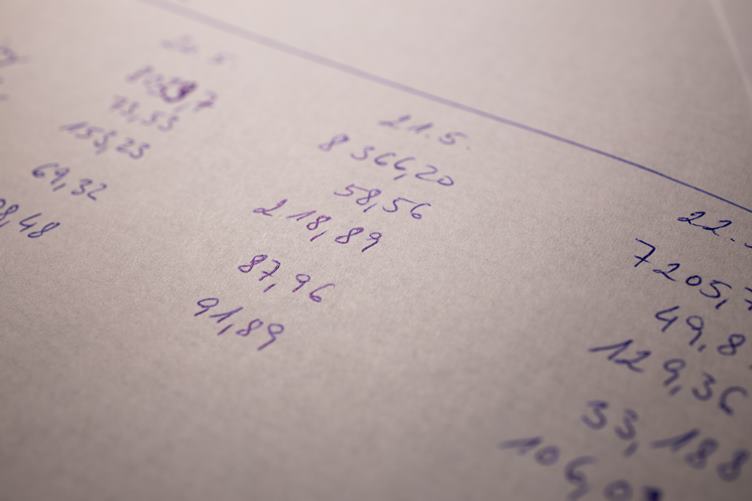 73,53
153,23
69,32
21.5.
8 366,20
58,56
218,89
87,96
91,89
22.
7205,
49,8
129,36
33,188